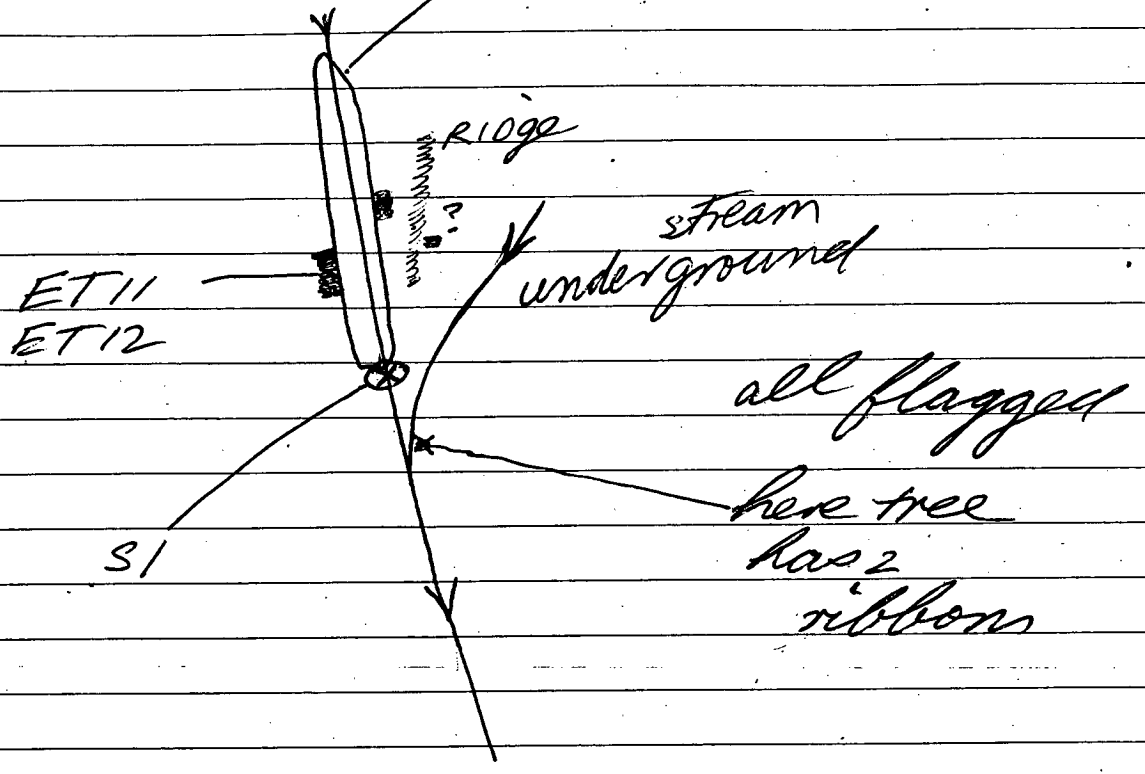 RIDGE
?
stream
underground
ET11
ET12
all flagged
S1
here tree
has 2
ribbons